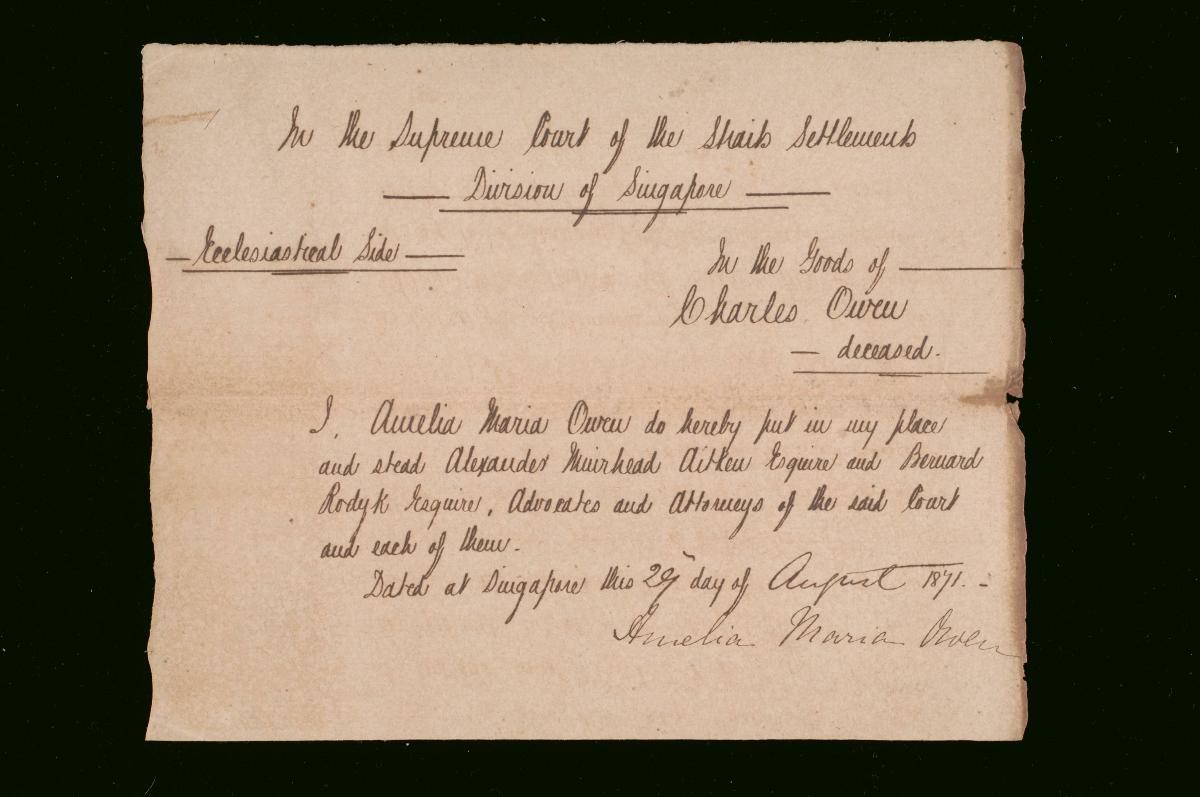 In the Supreme Court of the Straits Settlements
Division of Singapore
Ecclesiastical Side
In the Goods of
Charles Owen
deceased.
I, Amelia Maria Owen do hereby put in my place
and stead Alexander Muirhead Aitken Esquire and Bernard
Rodyk Esquire, Advocates and Attorneys of the said Court
and each of them.
Dated at Singapore this day of August 1871.
Amelia Maria Owen